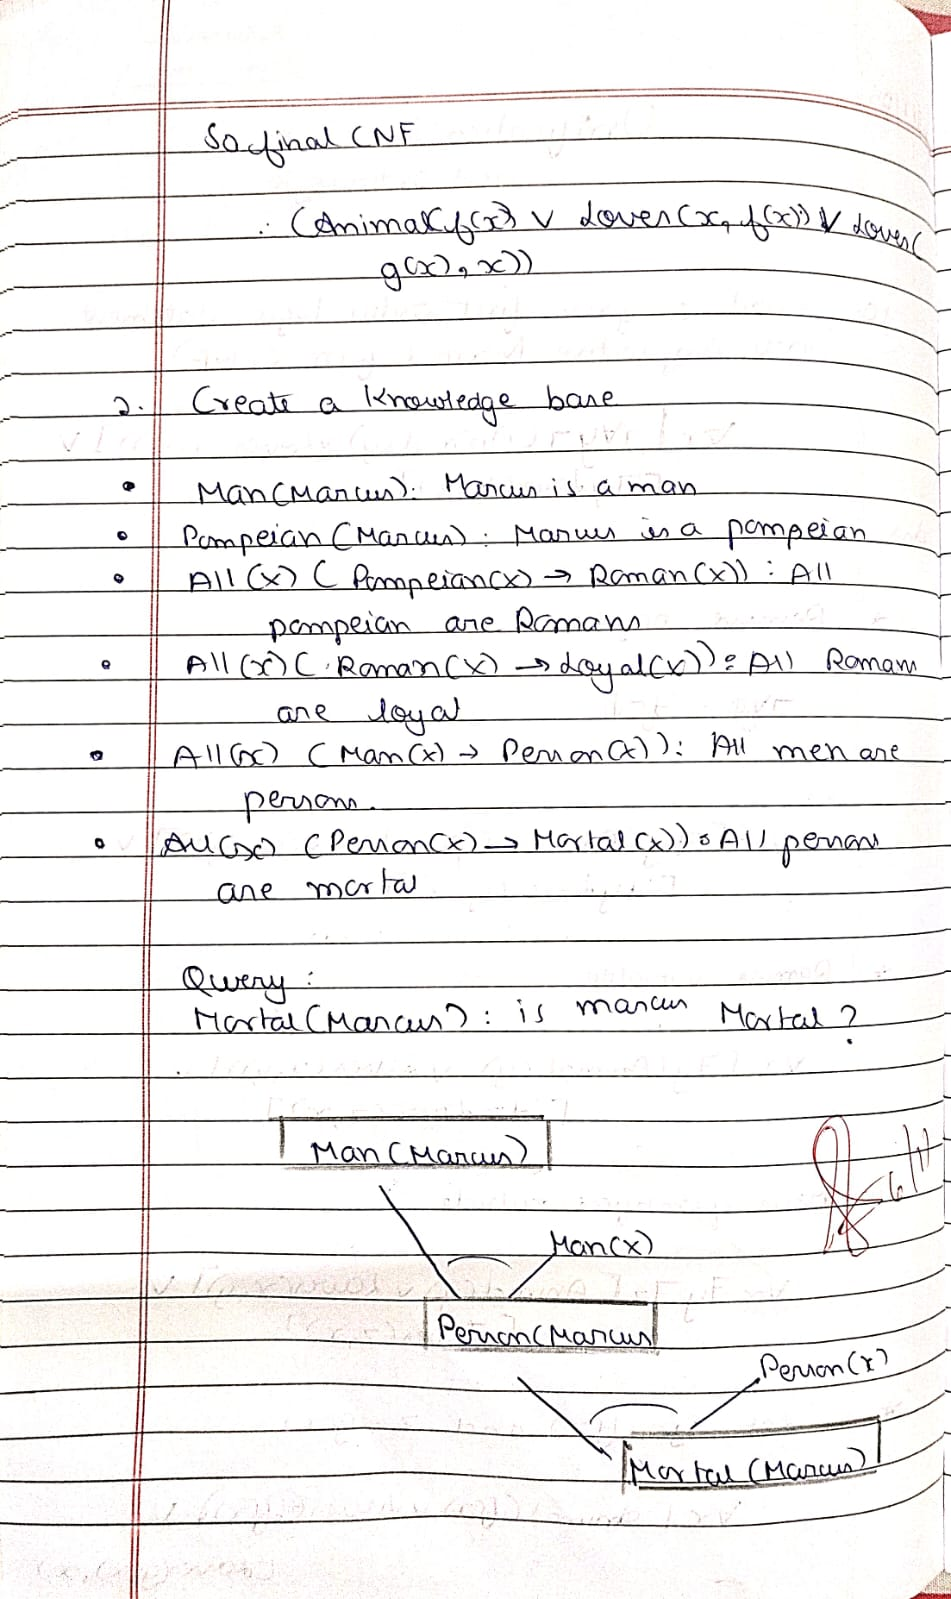 So final CNF
∴ (Animal(f(x)) ∨ Loves(x, f(x)) ∨ Loves(
g(x), x))
2. Create a Knowledge base
• Man(Marcus): Marcus is a man
• Pompeian (Marcus): Marcus is a pompeian
• All(x) ( Pompeian(x) → Roman(x)) : All
pompeian are Romans
• All(x) ( Roman(x) → Loyal(x)) : All Romans
are loyal
• All(x) ( Man(x) → Person(x)): All men are
persons.
• All(x) (Person(x) → Mortal(x)) : All persons
are mortal
Query :
Mortal(Marcus): is marcus Mortal ?
Man(Marcus)
Man(x)
Person(Marcus
Person(x)
Mortal (Marcus)